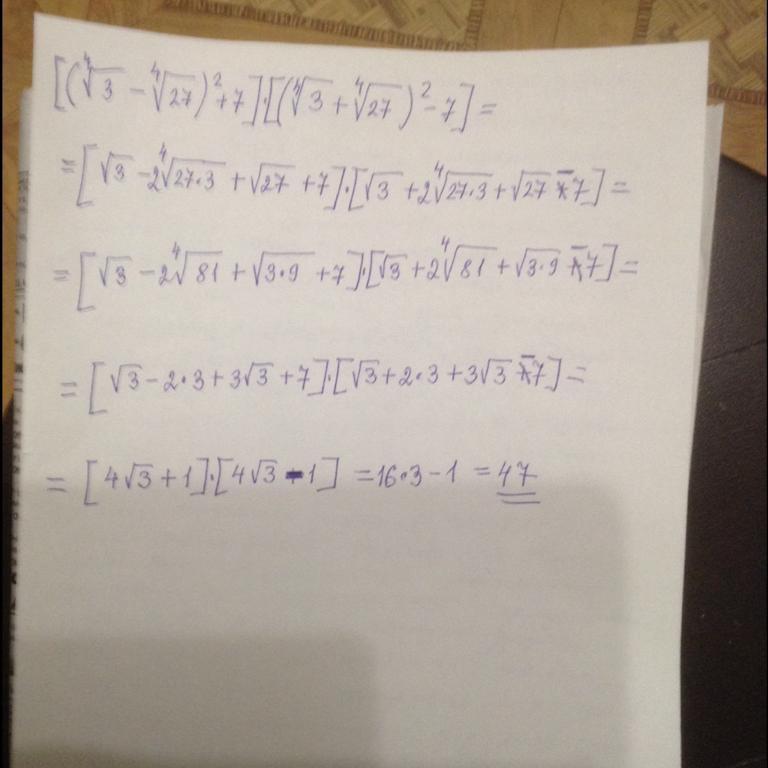 [(∜3 − ∜27)² + 7]·[(∜3 + ∜27)² − 7] =
= [√3 − 2∜27·3 + √27 + 7]·[√3 + 2∜27·3 + √27 − 7] =
= [√3 − 2∜81 + √3·9 + 7]·[√3 + 2∜81 + √3·9 − 7] =
= [√3 − 2·3 + 3√3 + 7]·[√3 + 2·3 + 3√3 − 7] =
= [4√3 + 1]·[4√3 − 1] = 16·3 − 1 = 47